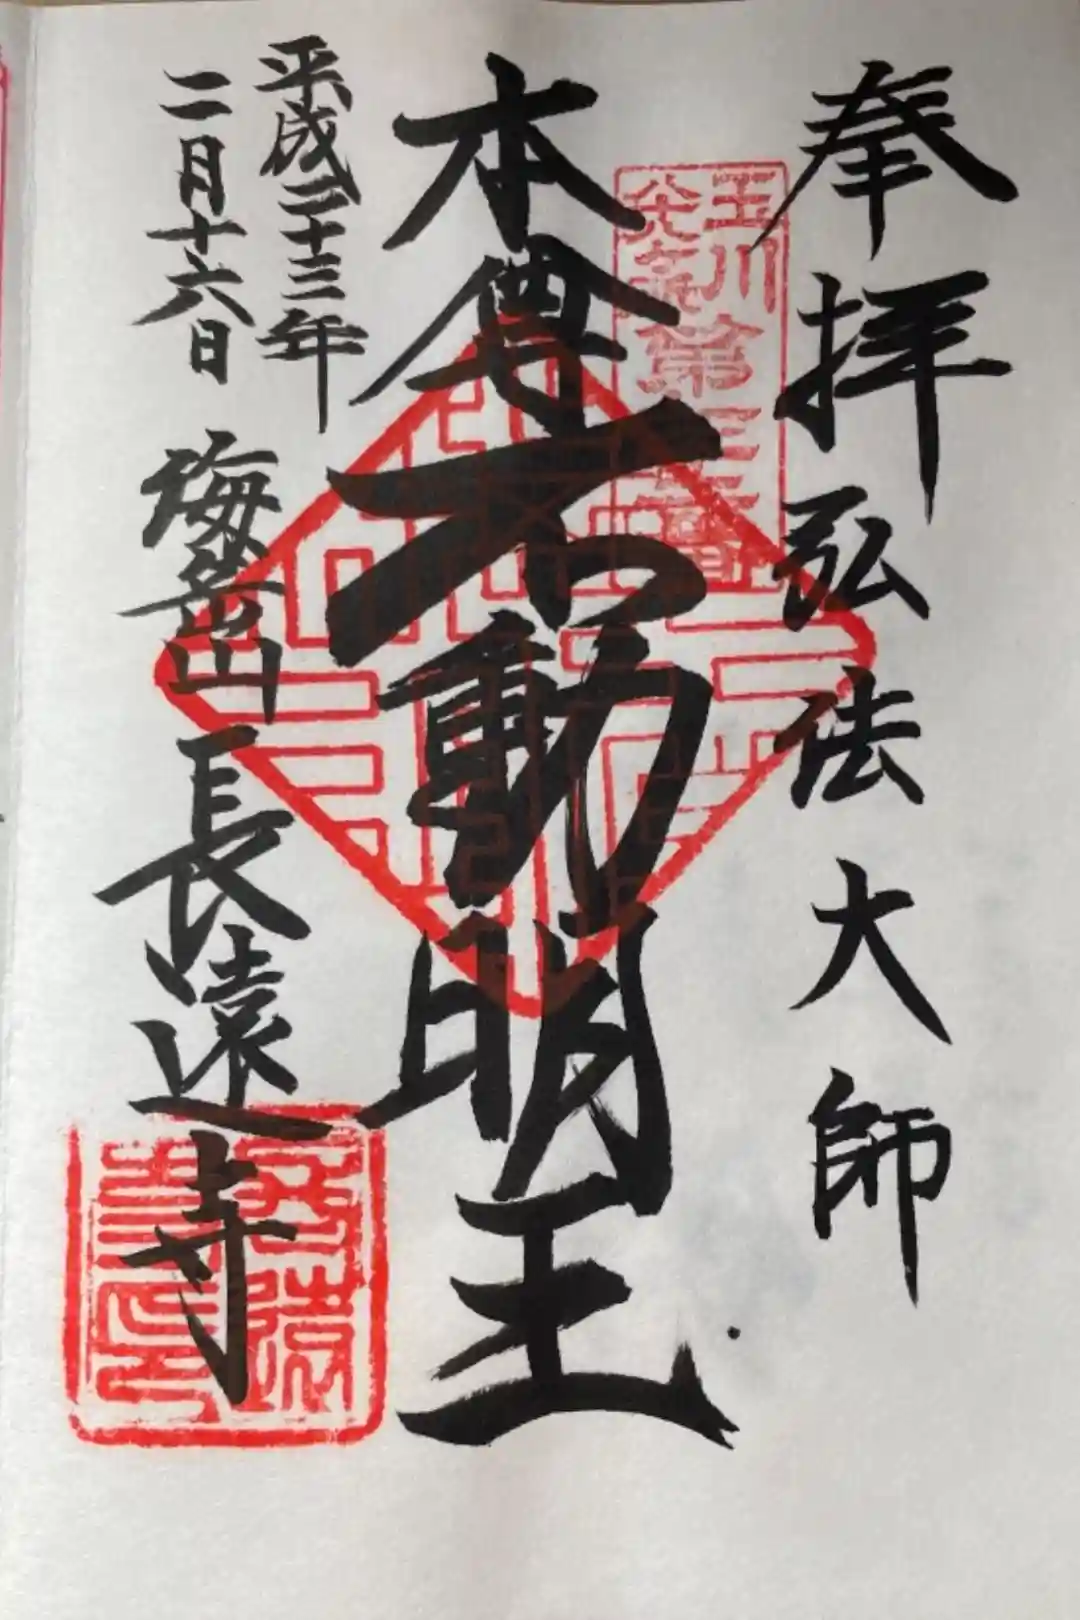 奉拝 弘法大師
玉川八十八ヶ所第三三番
本尊不動明王
平成二十三年
二月十六日
海岳山 長遠寺